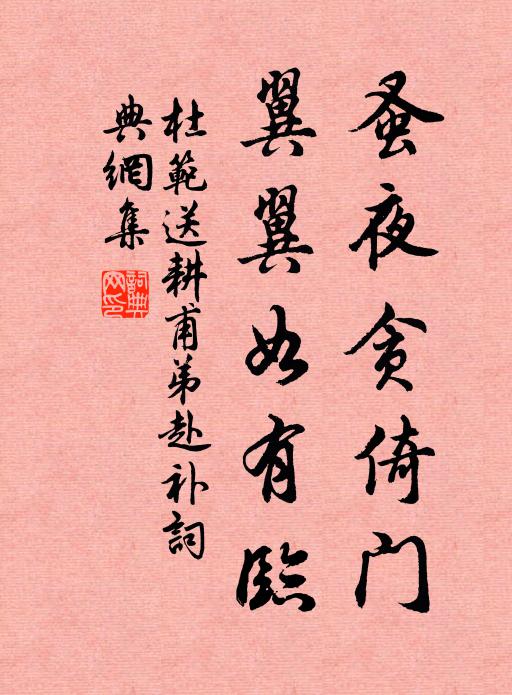 蚤夜贪倚门
翼翼如有臨
杜範送耕甫弟赴补詞
典網集
詞典网印